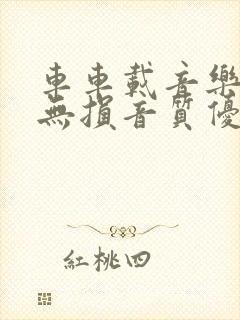 車車載音樂
無損音質優
紅桃四